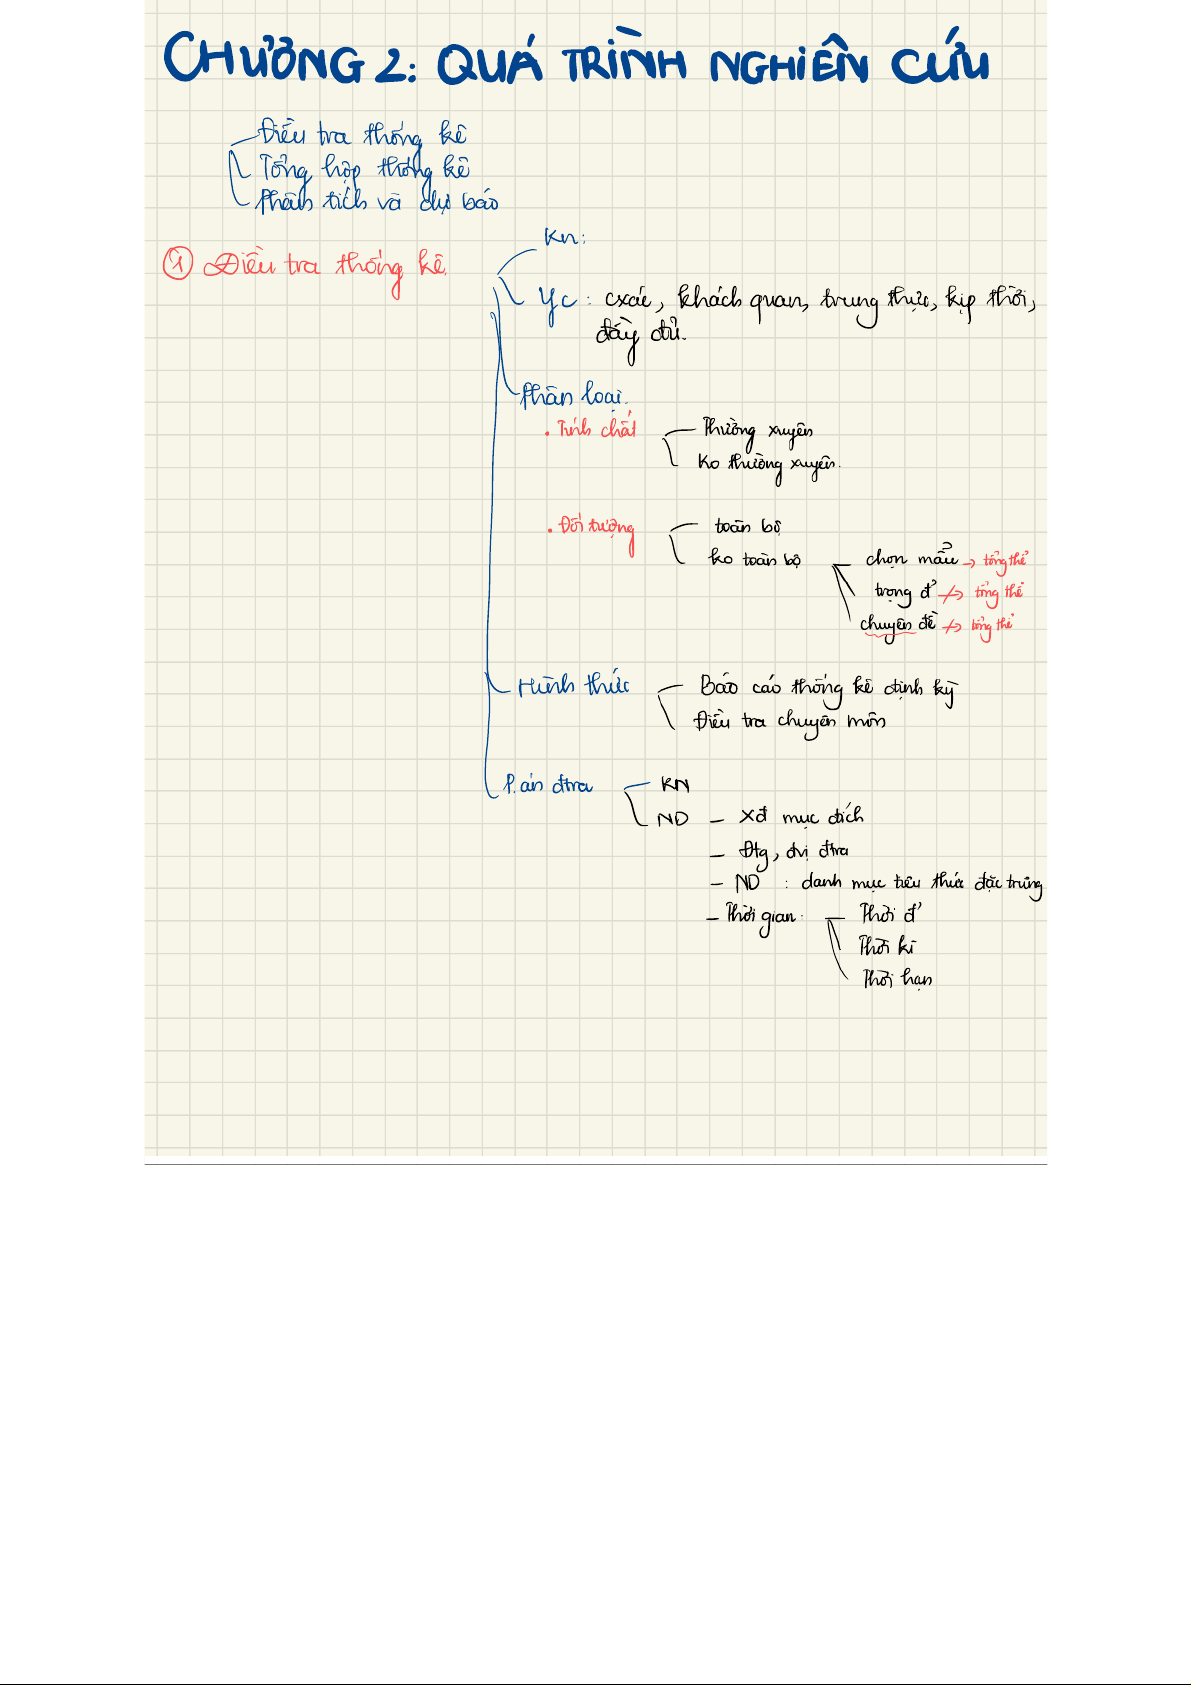 CHƯƠNG 2: QUÁ TRÌNH NGHIÊN CỨU
Điều tra thống kê
Tổng hợp thống kê
Phân tích và dự báo
① Điều tra thống kê.
Kn:
Yc: cxác, khách quan, trung thực, kịp thời,
đầy đủ.
Phân loại.
• Tính chất
Thường xuyên
Ko thường xuyên.
• Đối tượng
toàn bộ
ko toàn bộ
chọn mẫu → tổng thể
trọng đ' ↛ tổng thể
chuyên đề ↛ tổng thể
Hình thức
Báo cáo thống kê định kỳ
Điều tra chuyên môn
P.án đtra
KN
ND
- Xđ mục đích
- Đtg, đvị đtra
- ND : danh mục tiêu thức đặc trưng
- Thời gian:
Thời đ'
Thời kì
Thời hạn